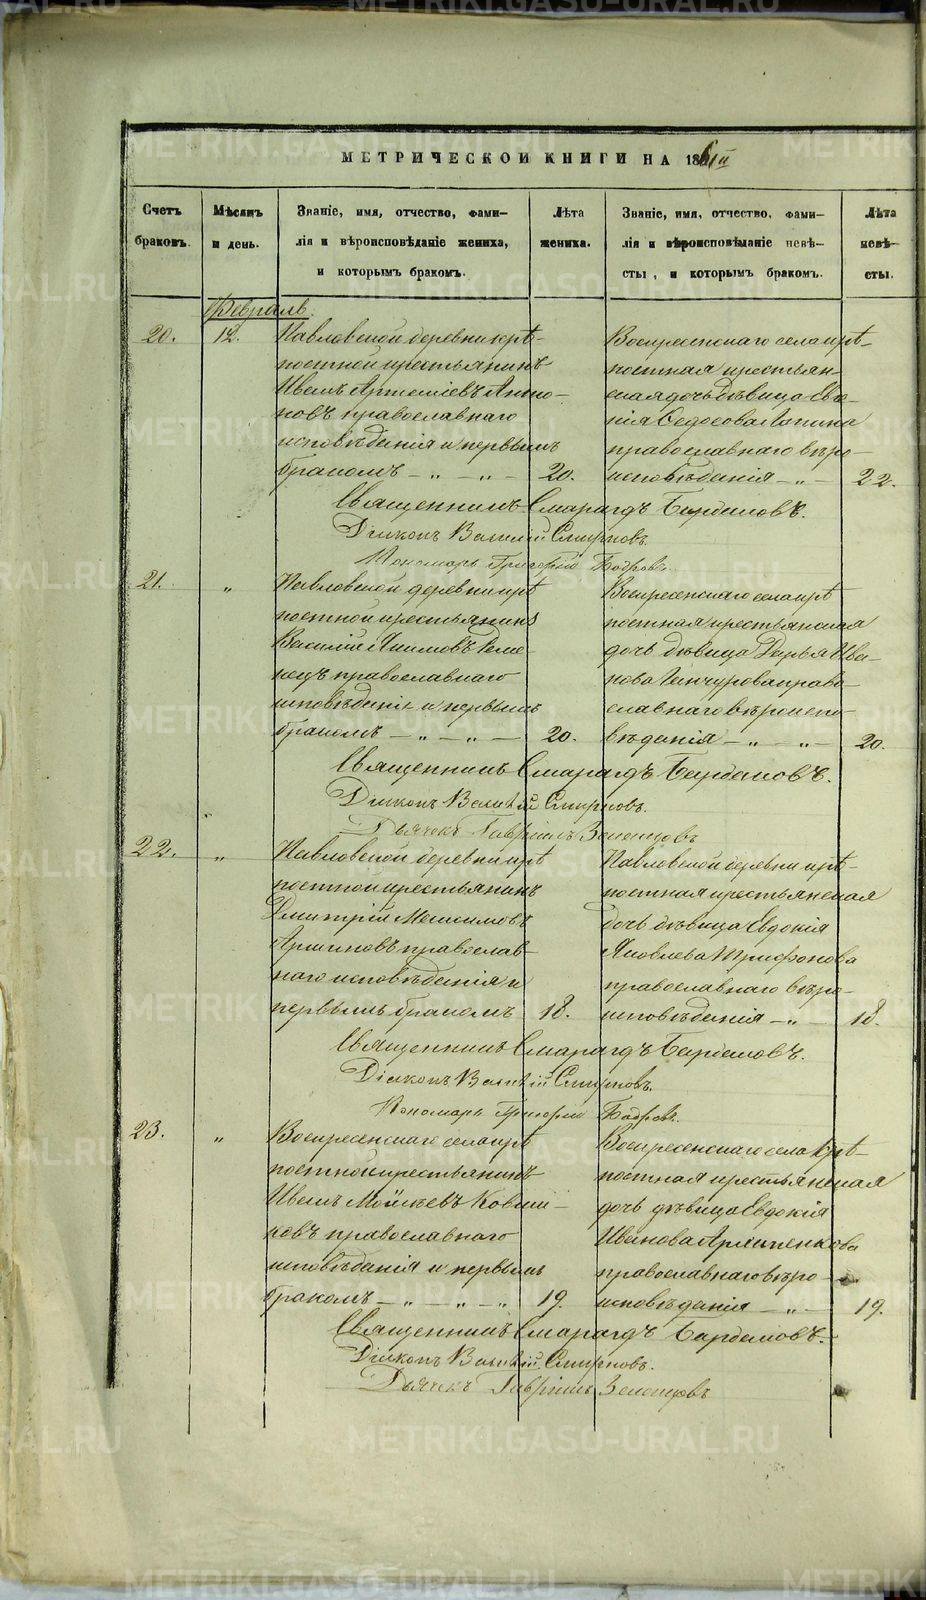 МЕТРИЧЕСКОЙ КНИГИ НА 1861й
Счетъ браковъ.
Мѣсяцъ и день.
Званіе, имя, отчество, фами-
лія и вѣроисповѣданіе жениха,
и которымъ бракомъ.
Лѣта жениха.
Званіе, имя, отчество, фами-
лія и вѣроисповѣданіе невѣ-
сты, и которымъ бракомъ.
Лѣта невѣ-
сты.
Февраль.
20.
12.
Павловской деревни крѣ-
постной крестьянинъ
Иванъ Артеміевъ Анто-
новъ православнаго
исповѣданія и первымъ
бракомъ — „ — „ —
20.
Воскресенскаго села крѣ-
постная крестьян-
ская дочь дѣвица Евге-
нія Ѳедосова Лапина
православнаго вѣро-
исповѣданія — „ —
22.
Священникъ Смарагдъ
Діаконъ Василій Смирновъ.
Пономарь Григорій Бобровъ.
21.
„
Павловской деревни крѣ
постной крестьянинъ
Василій Якимовъ
православнаго
исповѣданія и первымъ
бракомъ — „ — „ —
20.
Воскресенскаго села крѣ
постная крестьянская
дочь дѣвица Дарья Ива-
нова православ-
славнаго вѣроиспо-
вѣданія — „ — „ —
20.
Священникъ Смарагдъ
Діаконъ Василій Смирновъ.
Дьячекъ Гавріилъ Зеленцовъ
22.
„
Павловской деревни крѣ
постной крестьянинъ
Дмитрій Максимовъ
православ-
наго исповѣданія и
первымъ бракомъ
18.
Павловской деревни крѣ-
постная крестьянская
дочь дѣвица Евдокія
Яковлева Трифонова
православнаго вѣро-
исповѣданія — „ —
18.
Священникъ Смарагдъ
Діаконъ Василій Смирновъ.
Пономарь Григорій Бобровъ.
23.
„
Воскресенскаго села крѣ
постной крестьянинъ
Иванъ Мойсѣевъ Ковши-
ковъ православнаго
исповѣданія и первымъ
бракомъ — „ — „ — „
19.
Воскресенскаго села крѣ-
постная крестьянская
дочь дѣвица Евдокія
Иванова
православнаго вѣро-
исповѣданія — „ —
19.
Священникъ Смарагдъ
Діаконъ Василій Смирновъ.
Дьячекъ Гавріилъ Зеленцовъ
METRIKI.GASO-URAL.RU